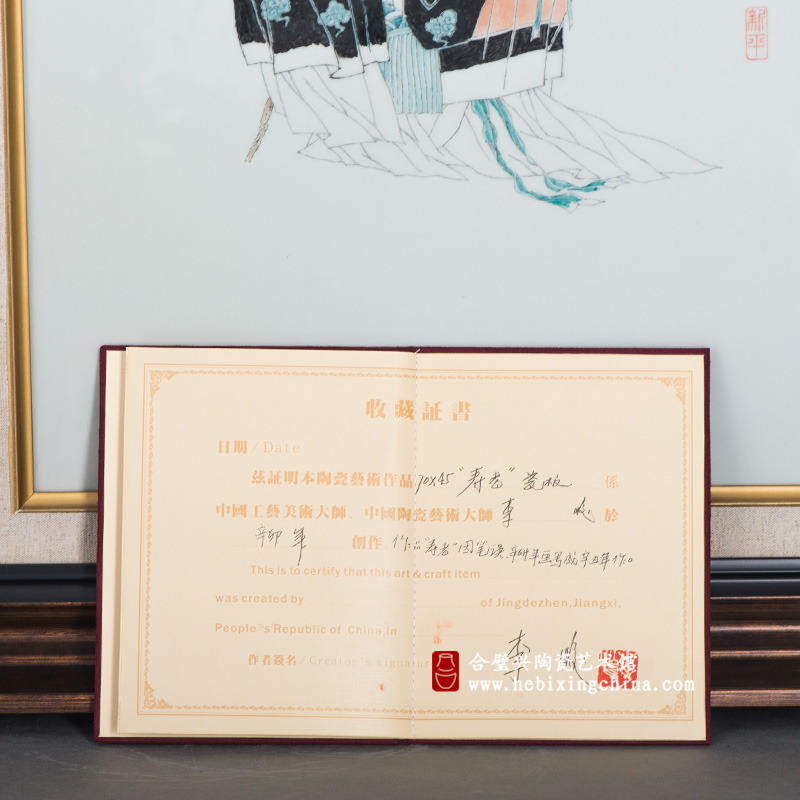 新平
收藏証書
日期/Date
兹証明本陶瓷藝術作品70x45"寿者"瓷板 係
中國工藝美術大師、中國陶瓷藝術大師 李 於
辛卯年 創作。作品"寿者"因笔误,辛卯年画写成辛丑年作。
This is to certify that this art & craft item
was created by of Jingdezhen,Jiangxi,
People's Republic of China,in
作者簽名/Creator's signature 李
合璧兴陶瓷艺术馆
www.hebixingchina.com